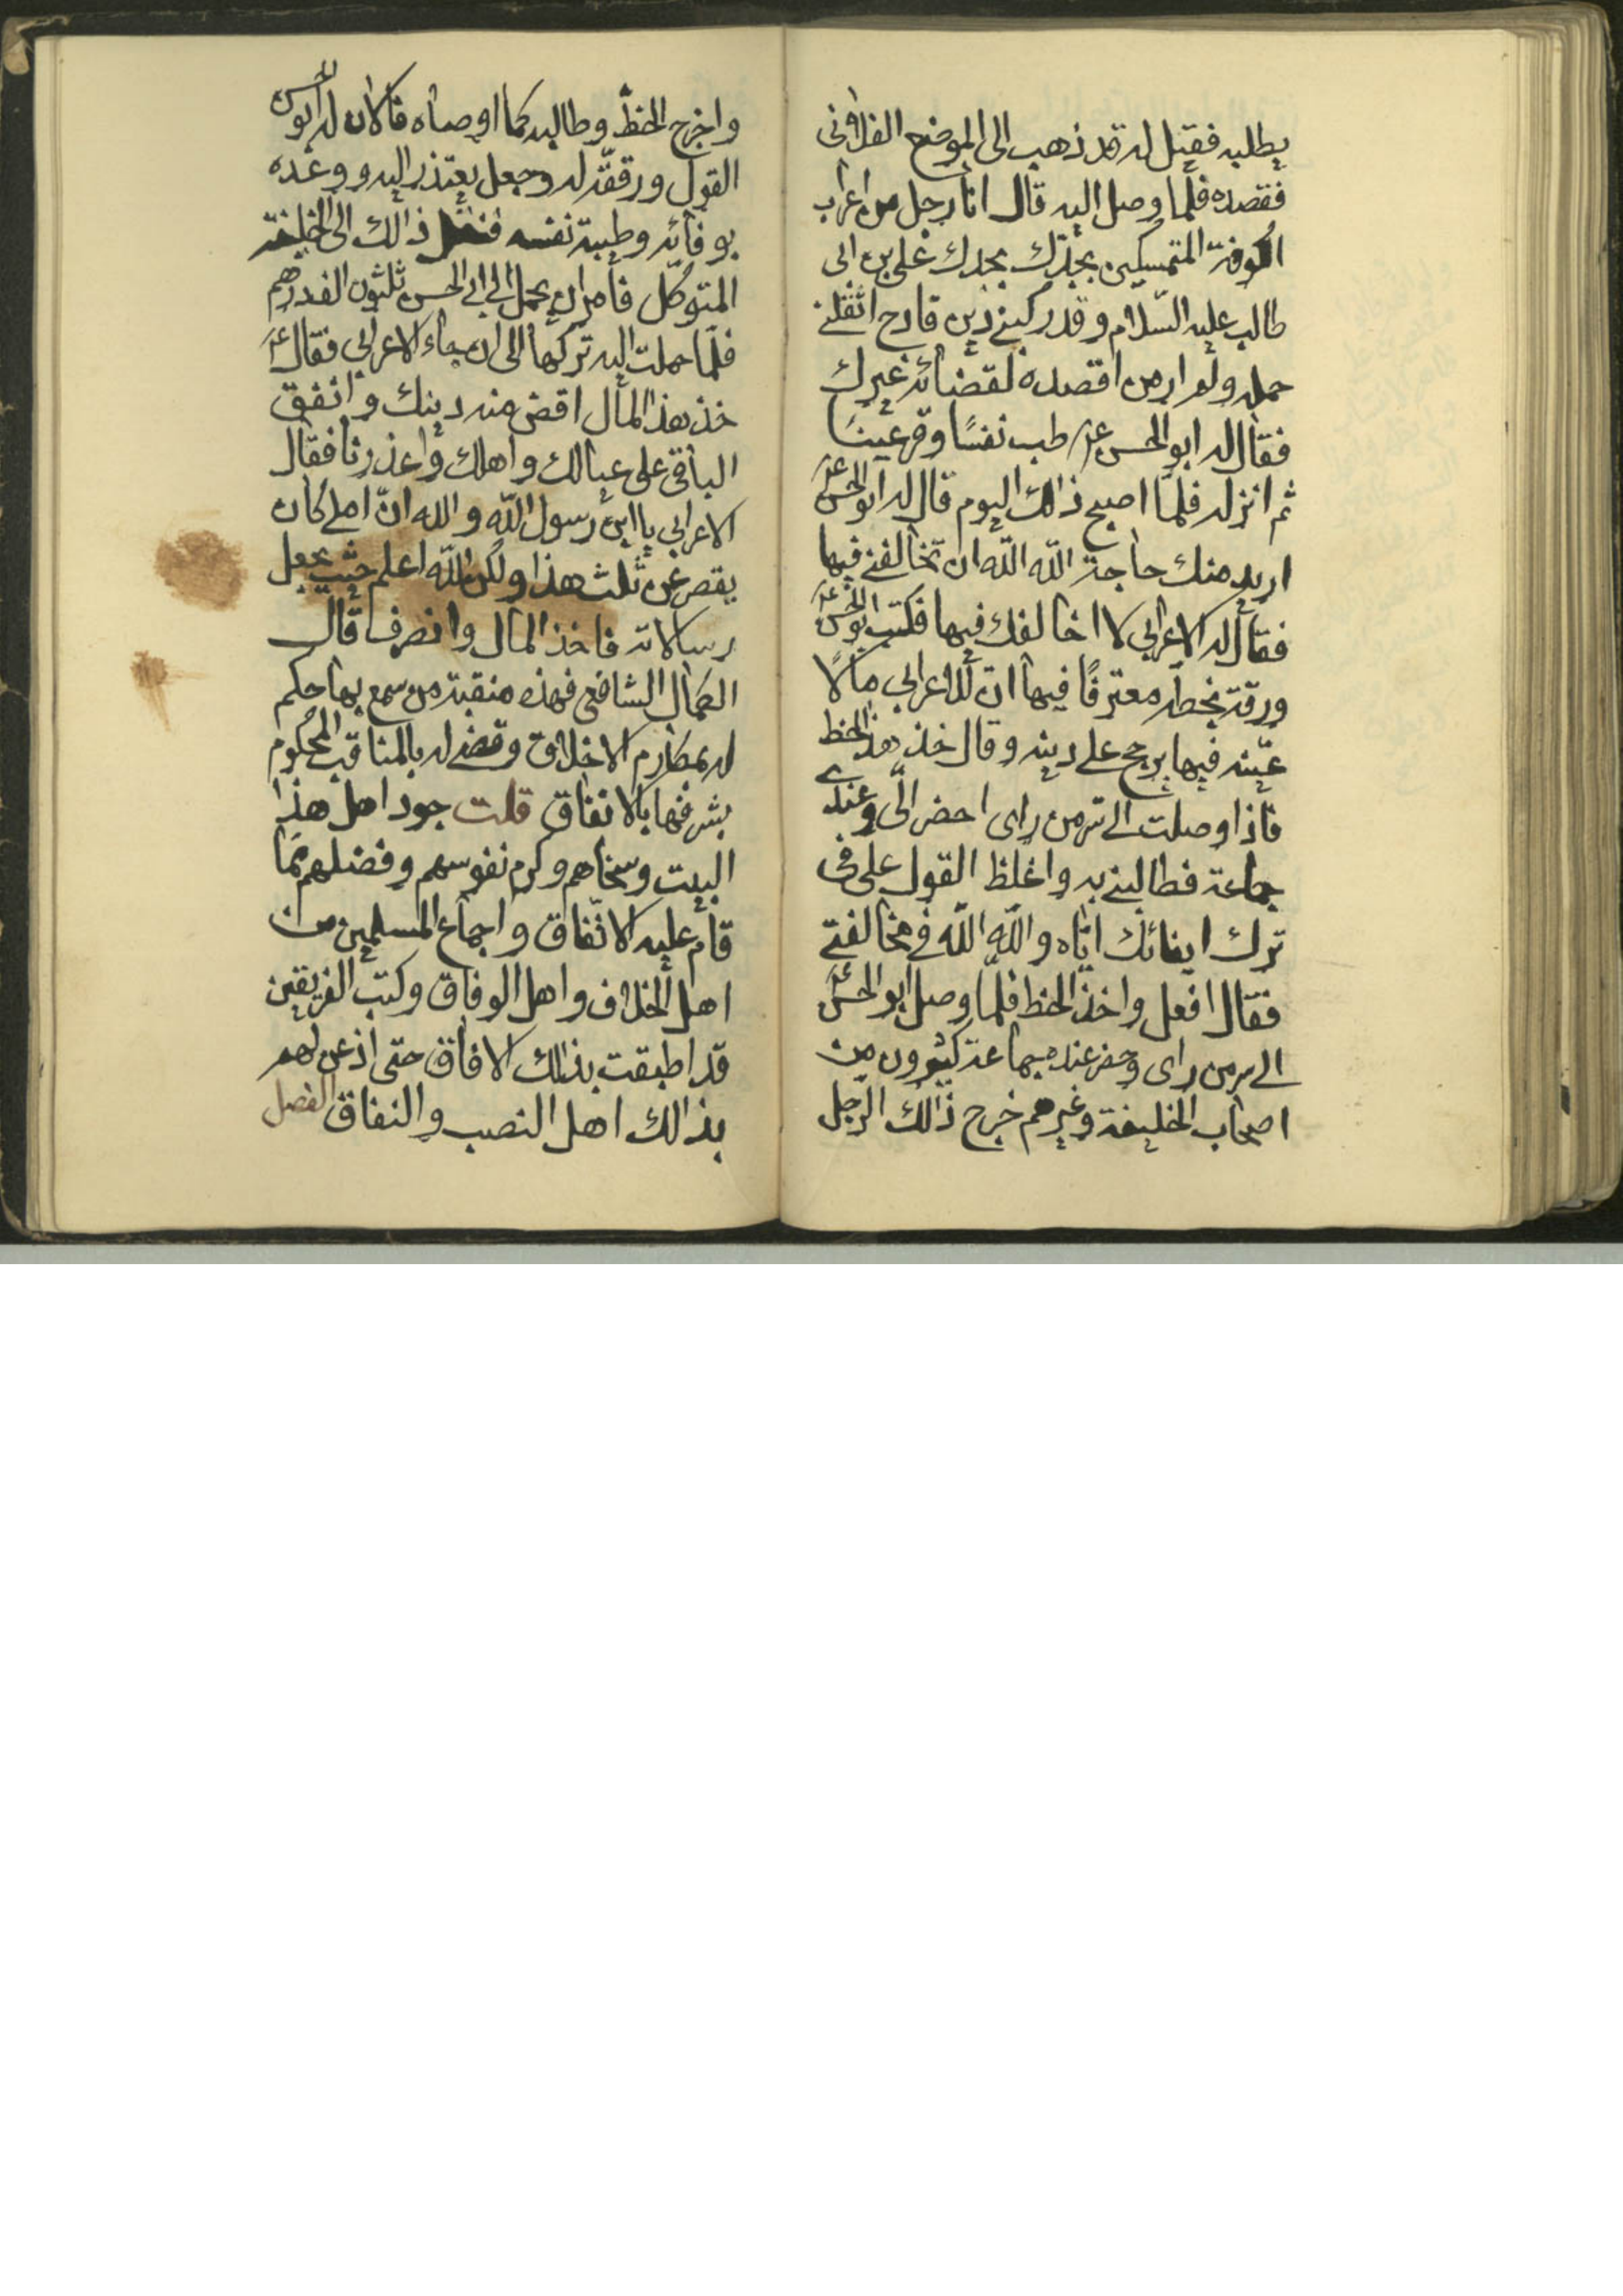 يطلبه فقيل له قد ذهب الى الموضع الفلانى
فقصده فلما وصل اليه قال انا رجل من اعراب
الكوفة المتمسكين بجدك بجدك على بن ابى
طالب عليه السلام وقد ركبنى دين فادح اثقلنى
حمله ولم ار من اقصده لقضائه غيرك
فقال له ابو الحسن ع طب نفسًا وقر عينًا
ثم انزله فلمّا اصبح ذالك اليوم قال له ابو الحسن ع
اريد منك حاجة الله الله ان تخالفنى فيها
فقال له الاعرابى لا اخالفك فيها فكتب ابو الحسن ع
ورقة بخطه معترفًا فيها ان للاعرابى مالًا
عيّنه فيها يرجح على دينه وقال خذ هذا الخط
فاذا وصلت الى سر من راى احضر الىّ وعندى
جماعة فطالبنى به واغلظ القول على فى
ترك ايفائك ايّاه والله الله فى مخالفتى
فقال افعل واخذ الخط فلما وصل ابو الحسن ع
الى سر من راى وحضر عنده جماعة كثيرون من
اصحاب الخليفة وغيرهم خرج ذالك الرّجل
واخرج الخطّ وطالبه كما اوصاه فالان له ابو الحسن
القول ورققّه له وجعل يعتذر اليه ووعده
بوفائه وطيبة نفسه فنقل ذالك الى الخليفة
المتوكّل فامر ان يحمل الى ابى الحسن ثلثون الف درهم
فلمّا حملت اليه تركها الى ان جاء الاعرابى فقال ع
خذ هذا المال اقض منه دينك وانفق
الباقى على عيالك واهلك واعذرنا فقال
الاعرابى يا ابن رسول الله والله انّ املى كان
يقصر عن ثلث هذا ولكن الله اعلم حيث يجعل
رسالاته فاخذ المال وانصرف قال
الكمال الشافعى فهذه منقبة من سمع بها حكم
له بمكارم الاخلاق وقضى له بالمناقب المحكوم
بشرفها بالاتفاق قلت جود اهل هذا
البيت وسخاهم وكرم نفوسهم وفضلهم ممّا
قام عليه الاتّفاق واجماع المسلمين من
اهل الخلاف واهل الوفاق وكتب الفريقين
قد اطبقت بذلك الافاق حتى اذعن لهم
بذالك اهل النصب والنفاق
الفصل